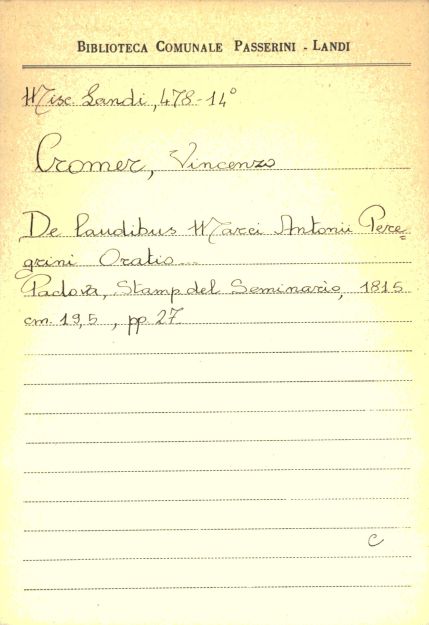 BIBLIOTECA COMUNALE PASSERINI - LANDI
Misc. Landi, 478-14°
Cromer, Vincenzo
De laudibus Marci Antonii Pere=
grini Oratio...
Padova, Stamp. del Seminario, 1815
cm. 19,5, pp. 27
C